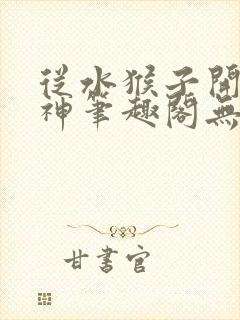 從水猴子開
神筆趣閣無
甘書官